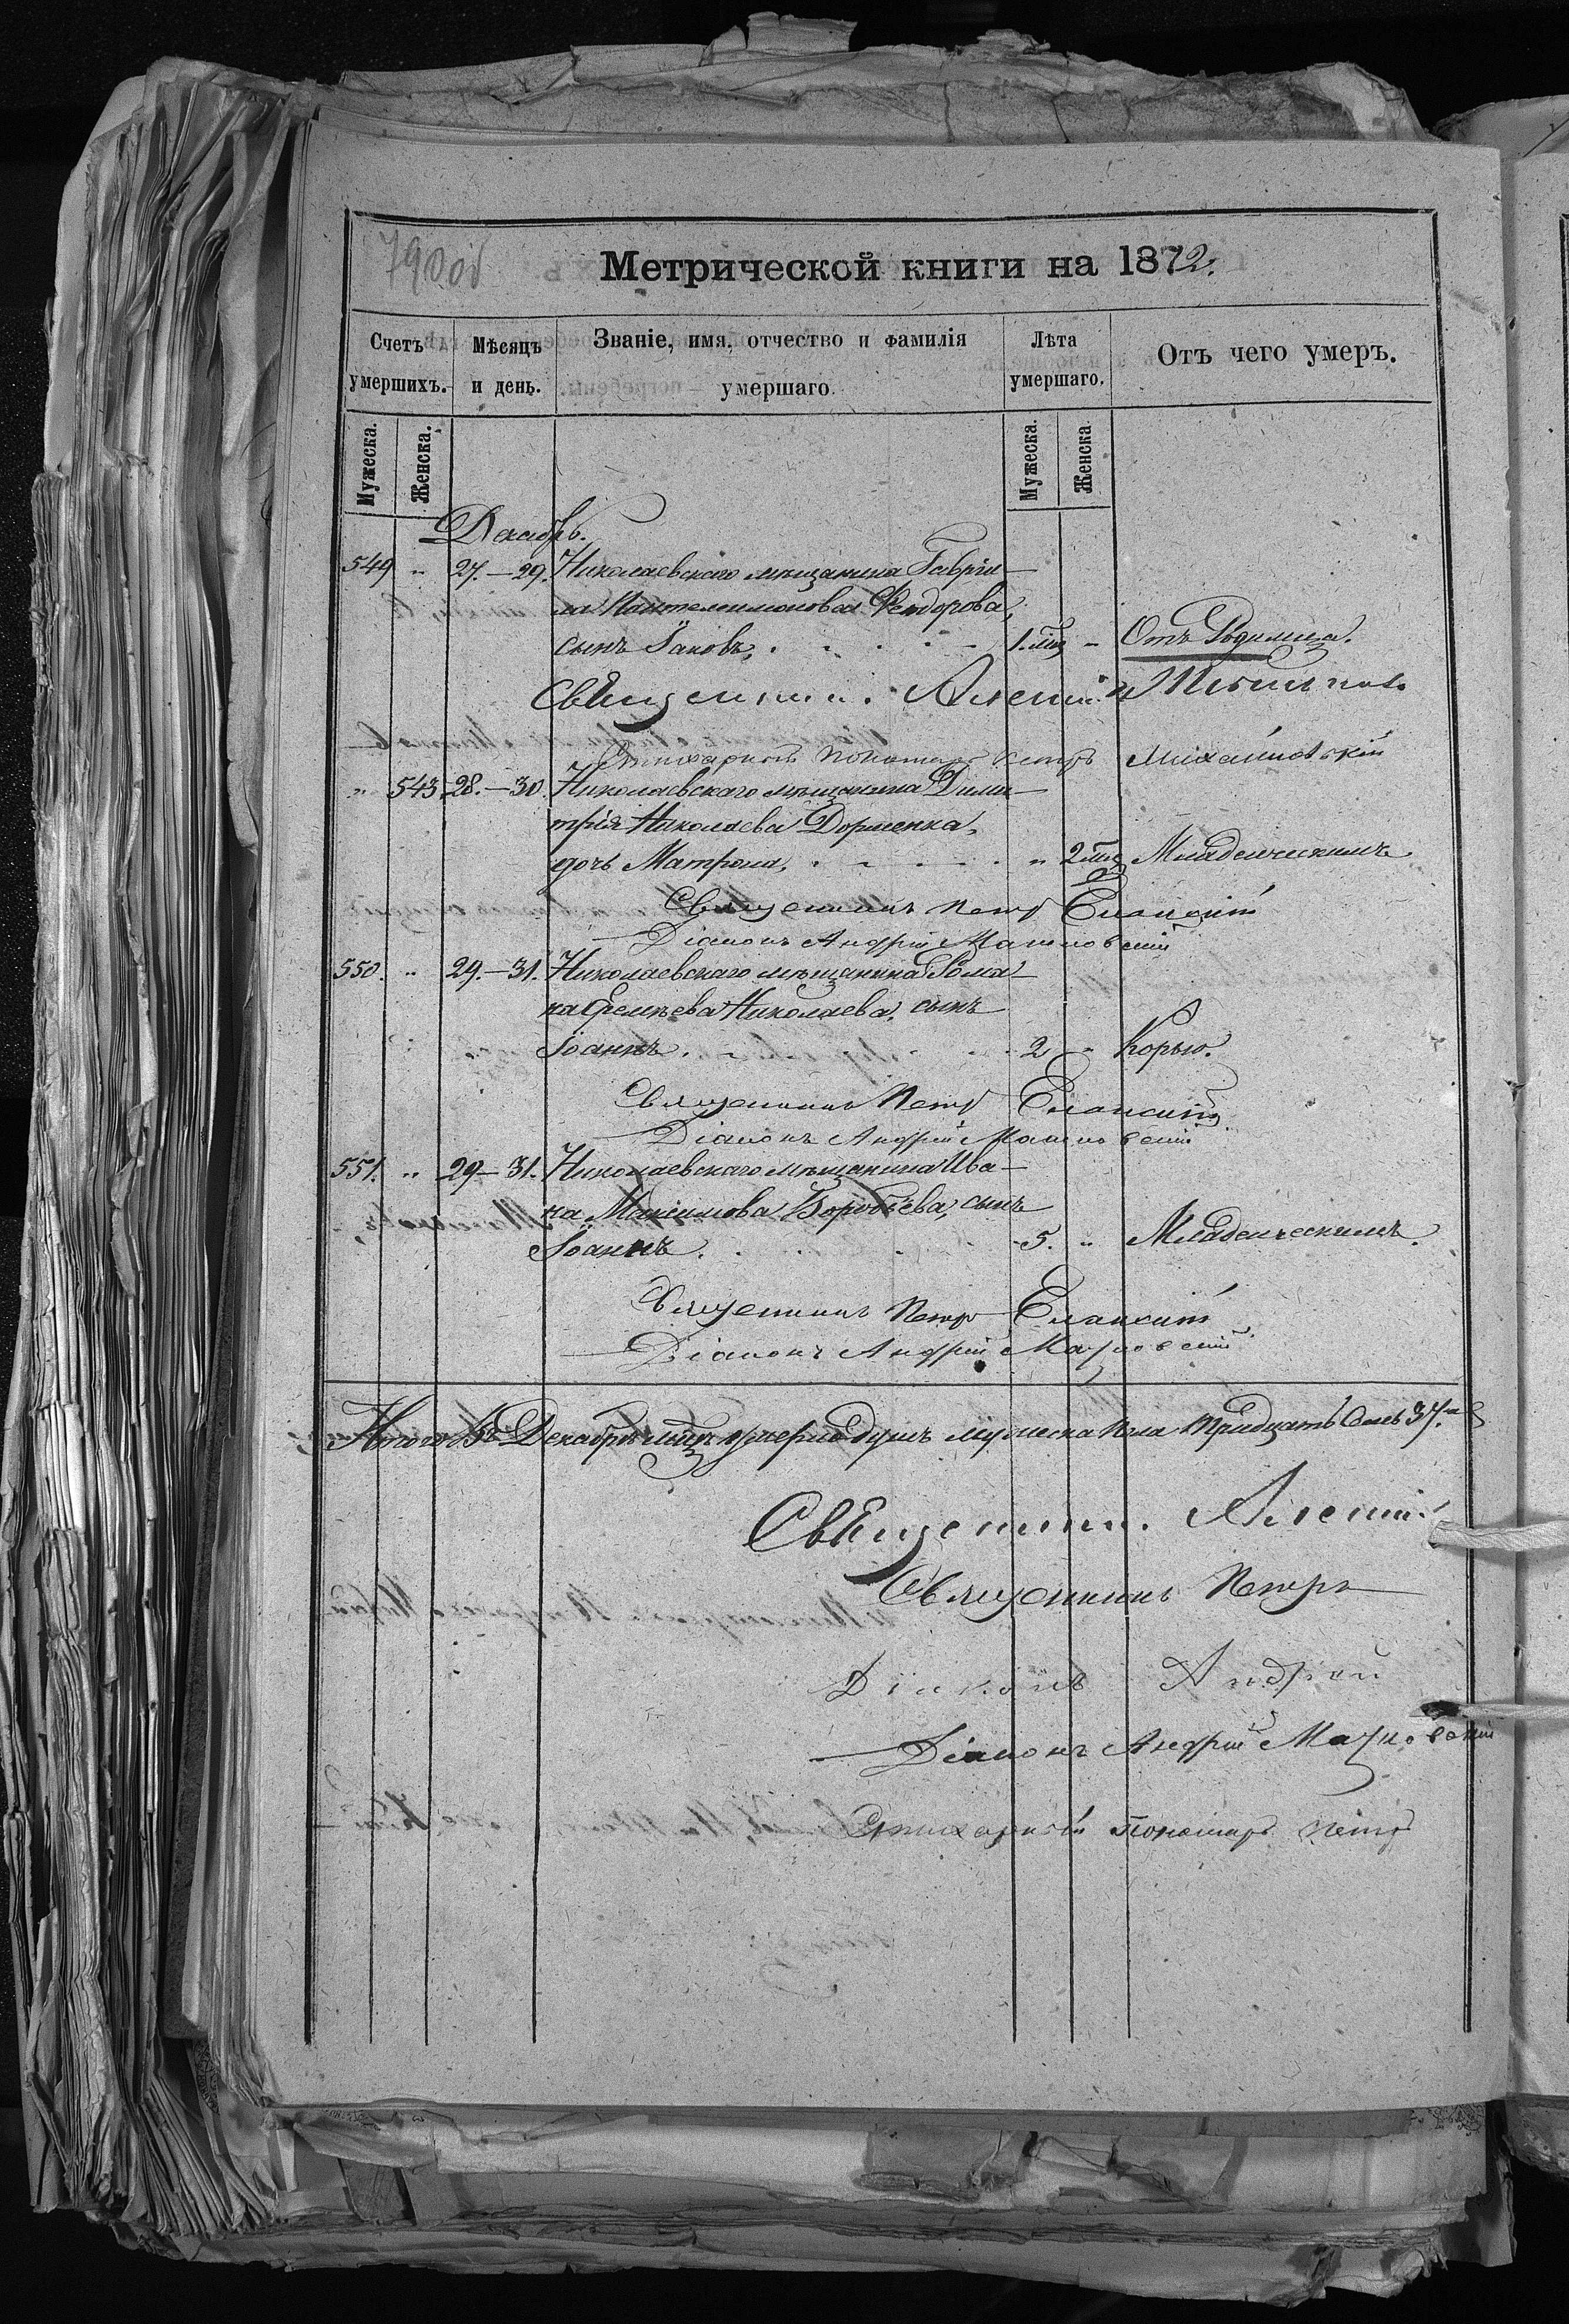 790 об
Метрической книги на 1872.
Счетъ умершихъ.
Мѣсяцъ и день.
Званіе, имя, отчество и фамилія умершаго.
Лѣта умершаго.
Отъ чего умеръ.
Мужеска.
Женска.
Мужеска.
Женска
Декабрь.
549 " 27.-29. Николаевского мѣщанина Гаврiи-
ла Пантелеимонова Ѳеодорова,
сынъ Іаковъ, 1. мц " Отъ Родимца.
Священникъ Алексій
Стихарный Пономарь Петръ Михайловскій
" 543. 28.-30. Николаевскаго мѣщанина Дими-
трія Николаева Дорменка,
дочь Матрона, " 2 мц Младенческимъ
Священникъ Петръ Еланскій
Діаконъ Андрей
550. " 29.-31. Николаевскаго мѣщанина Рома-
на Еремѣева Николаева, сынъ
Іоаннъ. 2 " Корью.
Священникъ Петръ Еланскій
Діаконъ Андрей
551. " 29-31. Николаевскаго мѣщанина Ива-
на Максимова Воробьева, сынъ
Іоаннъ. 5. " Младенческимъ.
Священникъ Петръ Еланскій
Діаконъ Андрей
Итого въ Декабрѣ мцѣ умерло душъ мужеска пола тридцать семь 37.
Священникъ Алексій
Священникъ Петръ
Діаконъ Андрей
Діаконъ Андрей
Стихарный Пономарь Петръ